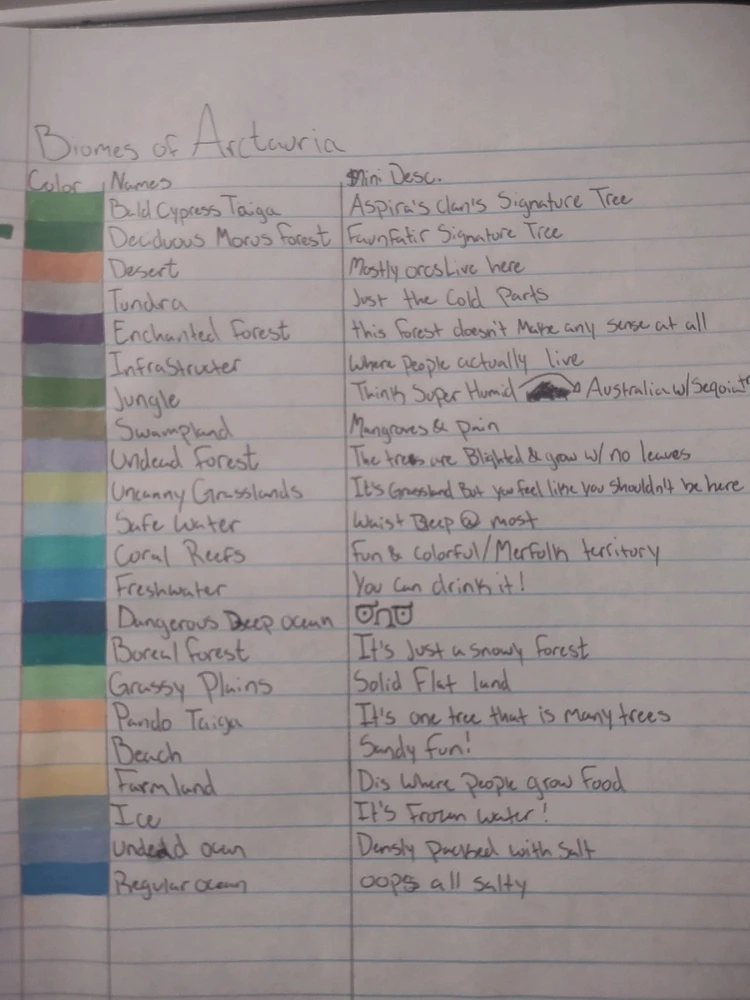 Biomes of Arctauria
Color Names Mini Desc.
Bald Cypress Taiga Aspira's clan's Signature Tree
Deciduous Morus Forest Faunfatir Signature Tree
Desert Mostly orcs Live here
Tundra Just the Cold Parts
Enchanted Forest this forest doesn't Make any sense at all
Infrastructer Where People actually live
Jungle Think Super Humid Australia w/
Swampland Mangroves & pain
Undead Forest The trees are Blighted & grow w/ no leaves
Uncanny Grasslands It's Grassland But you feel like you shouldn't be here
Safe Water Waist Deep @ most
Coral Reefs Fun & Colorful/Merfolk territory
Freshwater You Can drink it!
Dangerous Deep ocean
Boreal Forest It's Just a snowy Forest
Grassy Plains Solid Flat land
Pando Taiga It's one tree that is Many trees
Beach Sandy fun!
Farmland Dis Where people grow Food
Ice It's Frozen Water!
undead ocen Densly packed with Salt
Regular ocean oops all salty